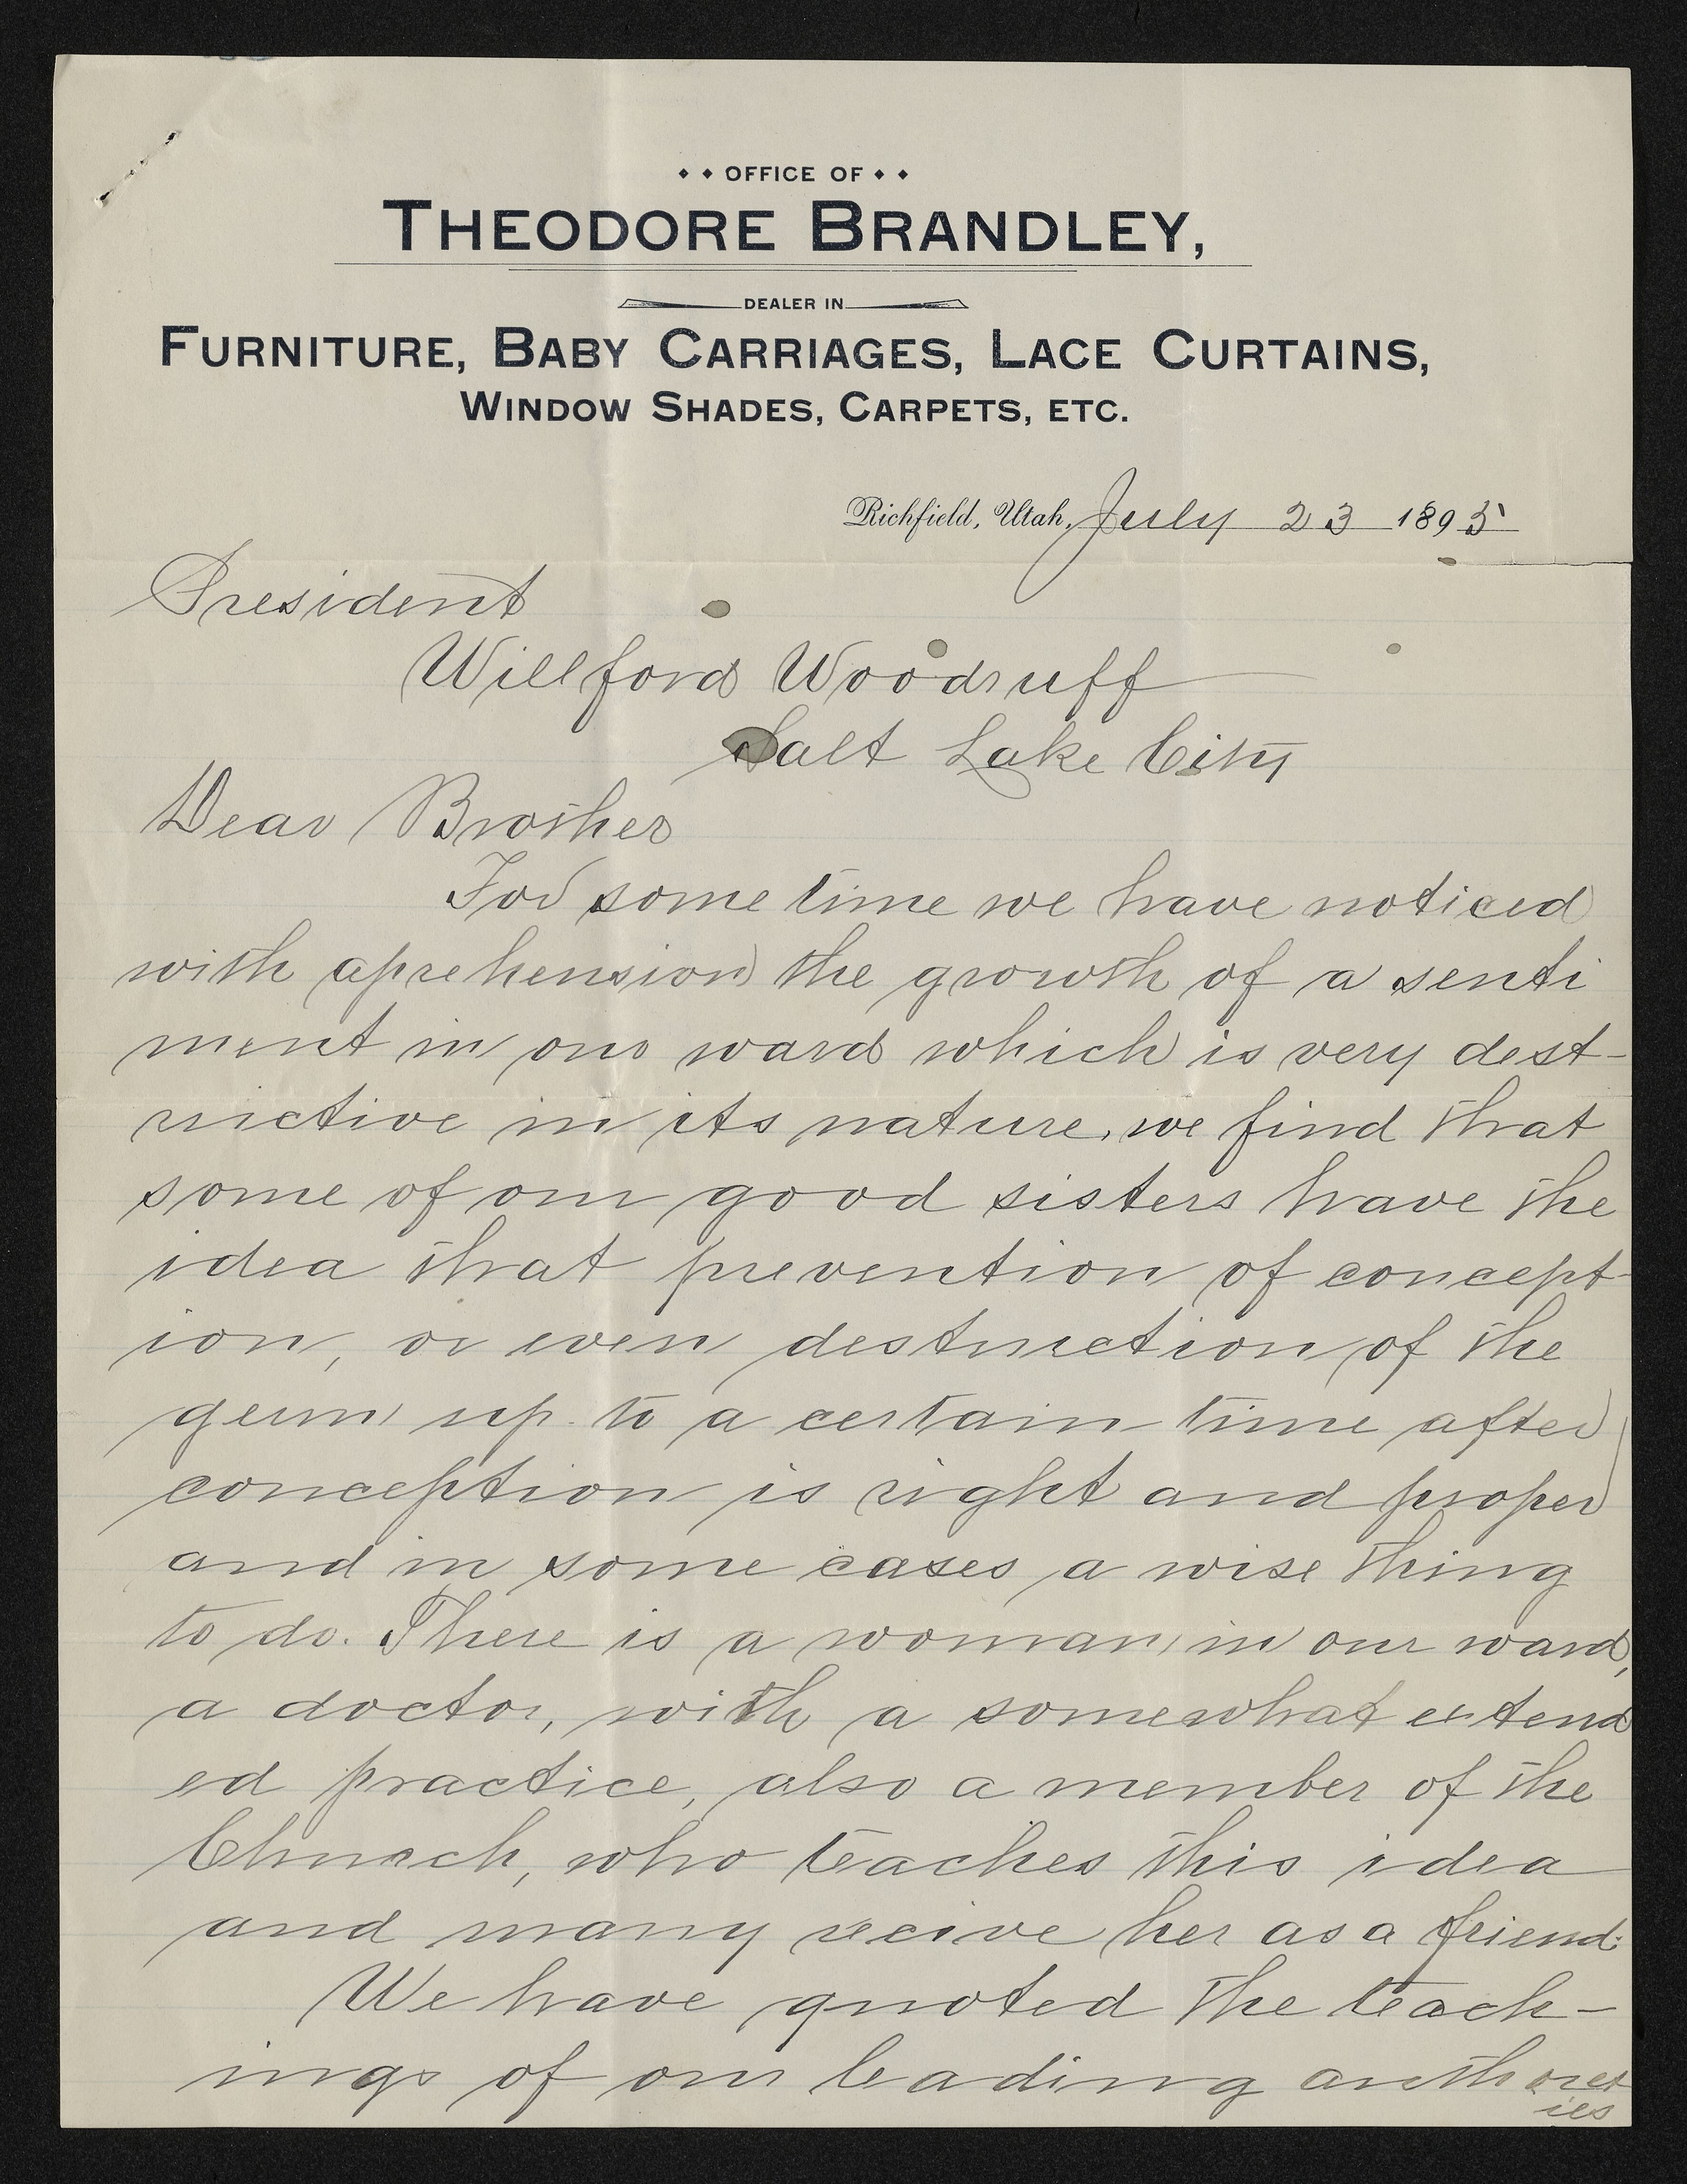 OFFICE OF
THEODORE BRANDLEY,
DEALER IN
FURNITURE, BABY CARRIAGES, LACE CURTAINS,
WINDOW SHADES, CARPETS, ETC.
Richfield, Utah, July 23 1895
President
Willford Woodruff
Salt Lake City
Dear Brother
For some time we have noticed
with aprehension the growth of a senti
ment in our ward which is very dest-
ructive in its nature, we find that
some of our good sisters have the
idea that prevention of concept-
ion, or even destruction of the
germ up to a certain time after
conception is right and proper
and in some cases a wise thing
to do. There is a woman in our ward,
a doctor, with a somewhat extend
ed practice, also a member of the
Church, who teaches this idea
and many recive her as a friend.
We have quoted the teach-
ings of our leading authoret
ies